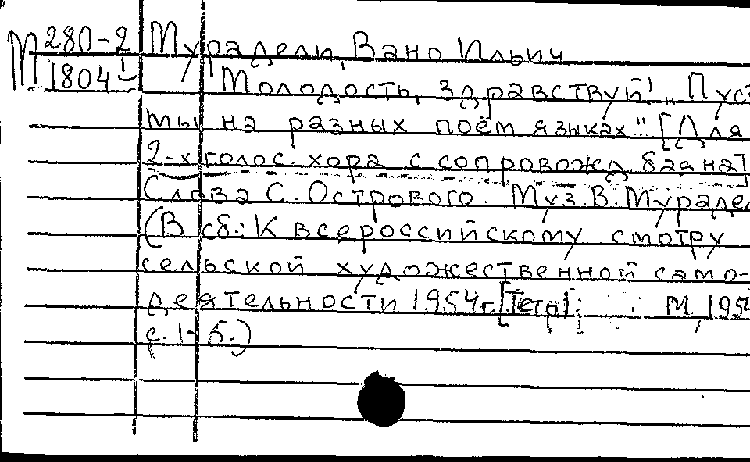 М 280-2 Мурадели, Вано Ильич
1804 Молодость, здравствуй! „Пус
мы на разных поём языках" [Для
2-х голос. хора с сопровожд. баяна]
Слова С. Острового. Муз. В. Мураде
(В сб.: К всероссийскому смотру
сельской художественной само-
деятельности 1954 г. [Тетр] М, 195
с. 1-5.)